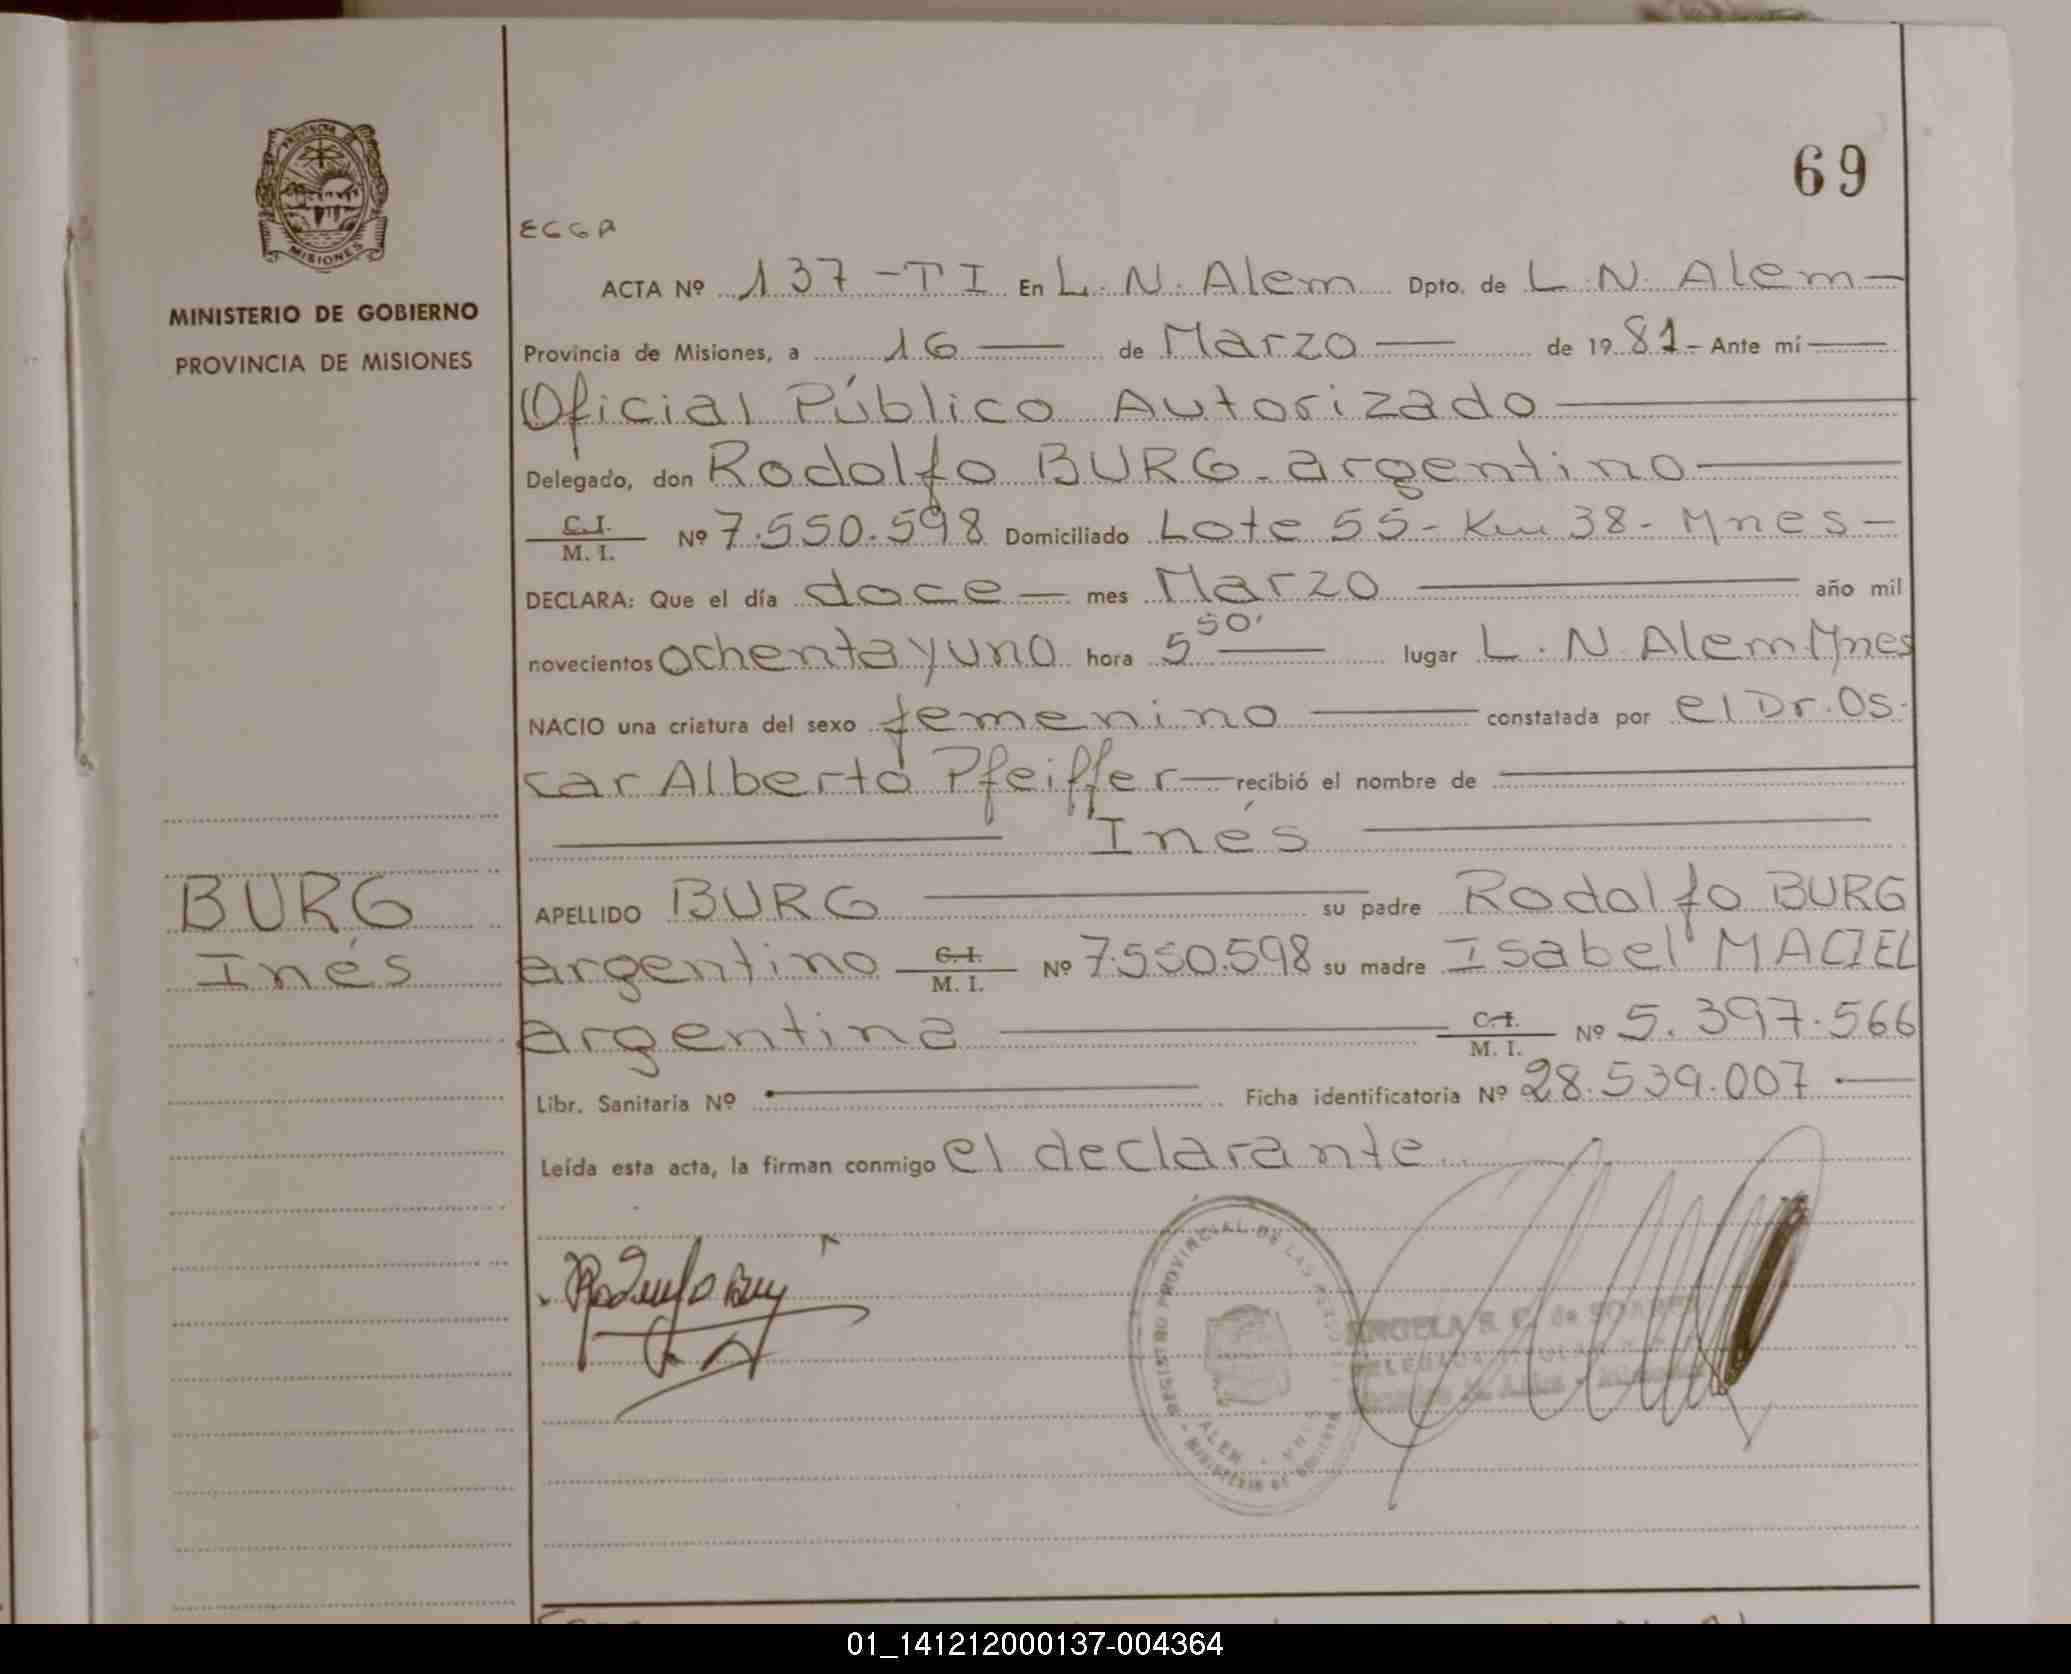 PROVINCIA DE
MISIONES
MINISTERIO DE GOBIERNO
PROVINCIA DE MISIONES
BURG
Inés
69
ECGR
ACTA Nº 137 - TI En L. N. Alem Dpto. de L. N. Alem -
Provincia de Misiones, a 16 — de Marzo — de 19 81 - Ante mí —
Oficial Público Autorizado —
Delegado, don Rodolfo BURG - argentino —
C.I. / M. I. Nº 7.550.598 Domiciliado Lote 55 - Km 38 - Mnes -
DECLARA: Que el día doce — mes Marzo — año mil
novecientos ochenta y uno hora 5 50' — lugar L. N. Alem Mnes
NACIO una criatura del sexo femenino — constatada por el Dr. Os-
car Alberto Pfeiffer — recibió el nombre de —
— Inés —
APELLIDO BURG — su padre Rodolfo BURG
argentino C.I. / M. I. Nº 7.550.598 su madre Isabel MACIEL
argentina — C.I. / M. I. Nº 5.397.566
Libr. Sanitaria Nº — Ficha identificatoria Nº 28.539.007 —
Leída esta acta, la firman conmigo el declarante
Rodolfo Burg
REGISTRO PROVINCIAL DE LAS
ALEM
ANGELA R. C. de
01_141212000137-004364